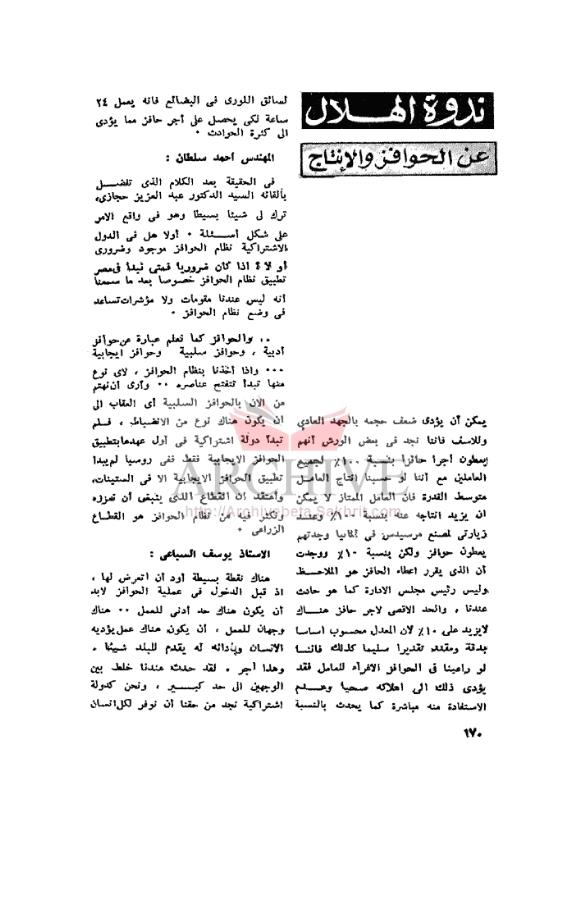 ندوة الهلال
عن الحوافز والإنتاج
يمكن أن يؤدى ضعف حجمه بالجهد العادى
وللاسف فاننا نجد فى بعض الورش أنهم
يعطون أجرا حافزا بنسبة ١٠٠٪ لجميع
العاملين مع أننا لو حسبنا انتاج العامل
متوسط القدرة فان العامل الممتاز لا يمكن
ان يزيد انتاجه عنه بنسبة ١٠٠٪ وعند
زيارتى لمصنع مرسيدس فى المانيا وجدتهم
يعطون حوافز ولكن بنسبة ١٠٪ ووجدت
أن الذى يقرر اعطاء الحافز هو الملاحظ
وليس رئيس مجلس الادارة كما هو حادث
عندنا ، والحد الاقصى لاجر حافز هناك
لايزيد على ١٠٪ لان المعدل محسوب أساسا
بدقة ومقدر تقديرا سليما كذلك فاننا
لو راعينا فى الحوافز الاغراء للعامل فقد
يؤدى ذلك الى اهلاكه صحيا وعدم
الاستفادة منه مباشرة كما يحدث بالنسبة
لسائق اللورى فى البضائع فانه يعمل ٢٤
ساعة لكى يحصل على أجر حافز مما يؤدى
الى كثرة الحوادث ٠
المهندس أحمد سلطان :
فى الحقيقة بعد الكلام الذى تفضل
بالقائه السيد الدكتور عبد العزيز حجازى،
ترك لى شيئا بسيطا وهو فى واقع الامر
على شكل أسئلة ٠ أولا هل فى الدول
الاشتراكية نظام الحوافز موجود وضرورى
أو لا ؟ اذا كان ضروريا فمتى نبدأ فى مصر
تطبيق نظام الحوافز خصوصا بعد ما سمعنا
أنه ليس عندنا مقومات ولا مؤشرات تساعد
فى وضع نظام الحوافز ٠
٠٠ والحوافز كما نعلم عبارة عن حوافز
أدبية ، وحوافز سلبية وحوافز ايجابية
٠٠٠ واذا أخذنا بنظام الحوافز ، لاى نوع
منها نبدأ تتفتح عناصره ٠٠ وأرى أن نهتم
من الان بالحوافز السلبية أى العقاب الى
أن يكون هناك نوع من الانضباط ، فلم
تبدأ دولة اشتراكية فى أول عهدها بتطبيق
الحوافز الايجابية فقط ففى روسيا لم يبدأ
تطبيق الحوافز الايجابية الا فى الستينات،
وأعتقد أن القطاع الذى ينبغى أن نعززه
ونكثر فيه من نظام الحوافز هو القطاع
الزراعى ٠
الاستاذ يوسف السباعى :
هناك نقطة بسيطة أود أن أتعرض لها ،
اذ قبل الدخول فى عملية الحوافز لابد
أن يكون هناك حد أدنى للعمل ٠٠ هناك
وجهان للعمل ، أن يكون هناك عمل يؤديه
الانسان وبأدائه له يقدم للبلد شيئا ،
وهذا أجر ٠ لقد حدث عندنا خلط بين
الوجهين الى حد كبير ، ونحن كدولة
اشتراكية نجد من حقنا أن نوفر لكل انسان
١٧٠
ARCHIVE
http://Archivebeta.Sakhrit.com